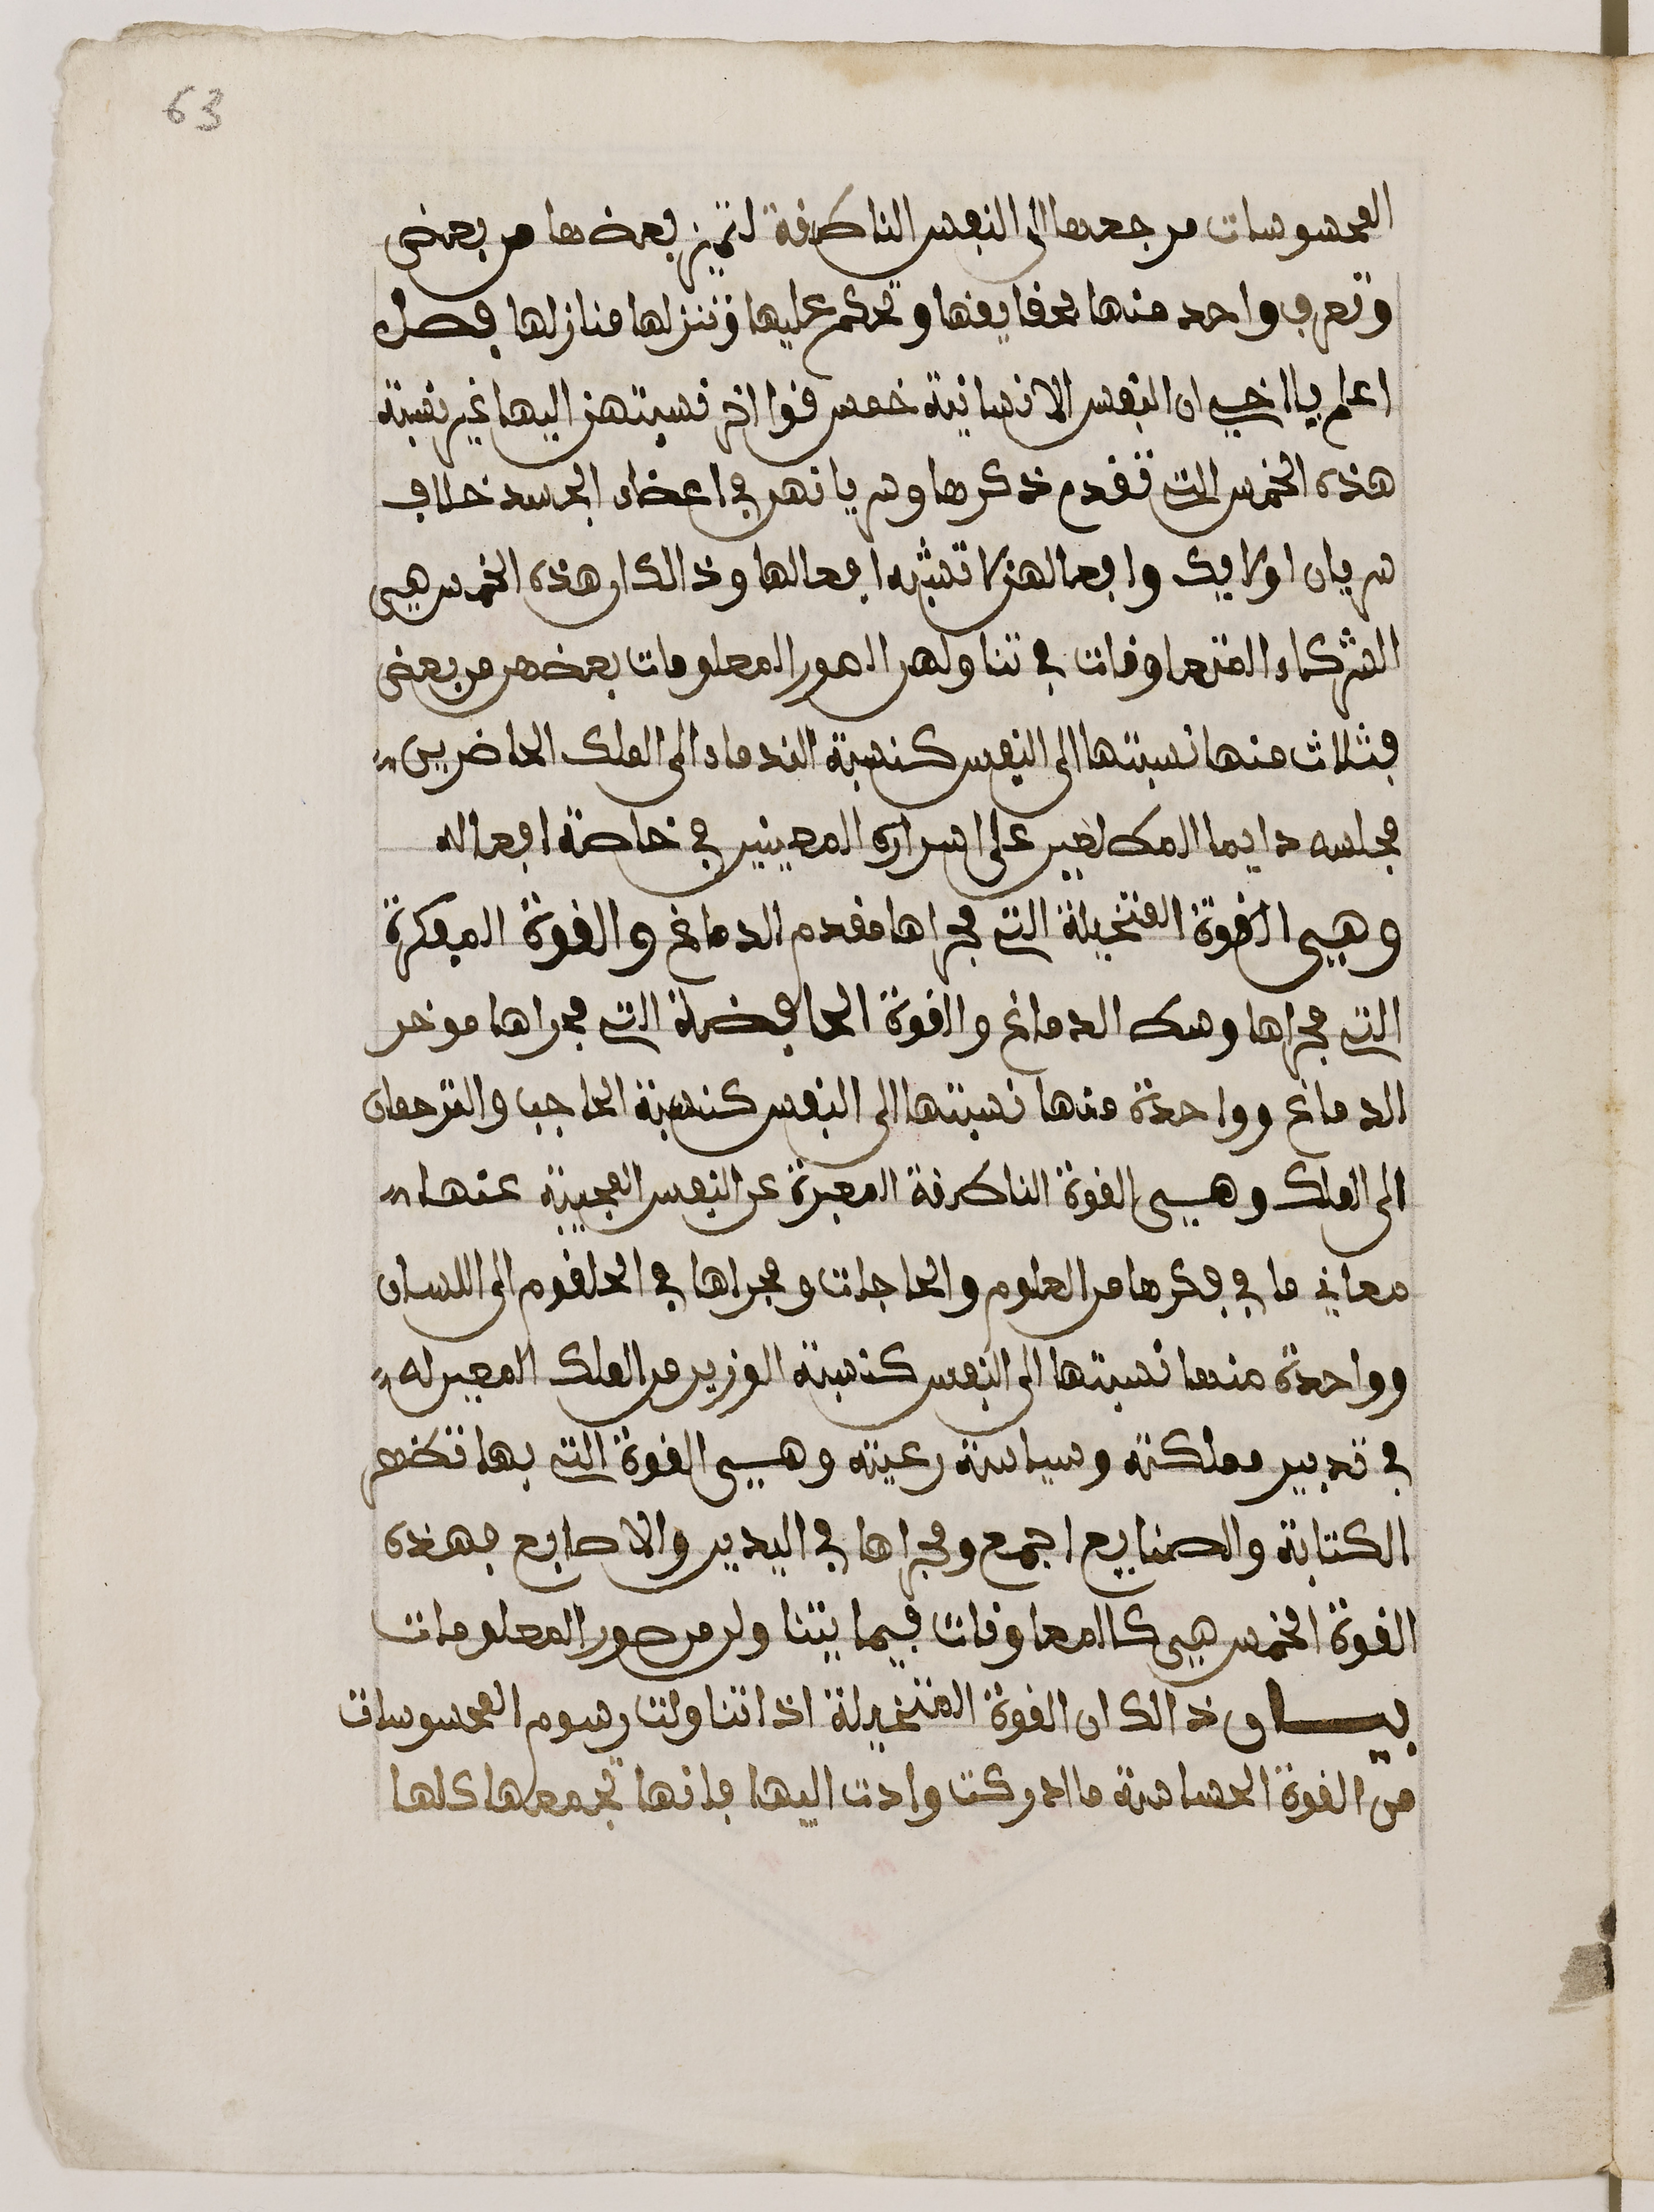 63
المحسوسات مرجعها الى النفس الناطقة لتميز بعضها من بعض
وتعرف واحد منها بحقايقها وتحكم عليها وتنزلها منازلها فصل
اعلم يا اخي ان النفس الانسانية خمس قوا اخر نسبتهن اليها غير نسبة
هذه الخمس التي تقدم ذكرها وسريانهن في اعضاء الجسد خلاف
سريان اولايك وافعالهن لا تشبه افعالها وذالك ان هذه الخمس هي
الشركاء المتعاونات في تناولهن الصور المعلومات بعضهن من بعض
فثلاث منها نسبتها الى النفس كنسبة الندماء الى الملك الحاضرين
مجلسه دايما المطلعين على اسراره المعينين في خاصة افعاله
وهي القوة المتخيلة التي مجراها مقدم الدماغ والقوة المفكرة
التي مجراها وسط الدماغ والقوة الحافظة التي مجراها موخر
الدماغ وواحدة منها نسبتها الى النفس كنسبة الحاجب والترجمان
الى الملك وهي القوة الناطقة المعبرة عن النفس المجيبة عنها
معاني ما في فكرها من العلوم والحاجات ومجراها في الحلقوم الى اللسان
وواحدة منها نسبتها الى النفس كنسبة الوزير من الملك المعين له
في تدبير مملكته وسياسة رعيته وهي القوة التي بها تظهر
الكتابة والصنايع اجمع ومجراها في اليدين والاصابع فهذه
القوة الخمس هي كالمعاونات فيما يتناولن من صور المعلومات
بيان ذالك ان القوة المتخيلة اذا تناولت رسوم المحسوسات
من القوة الحساسة ما ادركت وادت اليها فانها تجمعها كلها